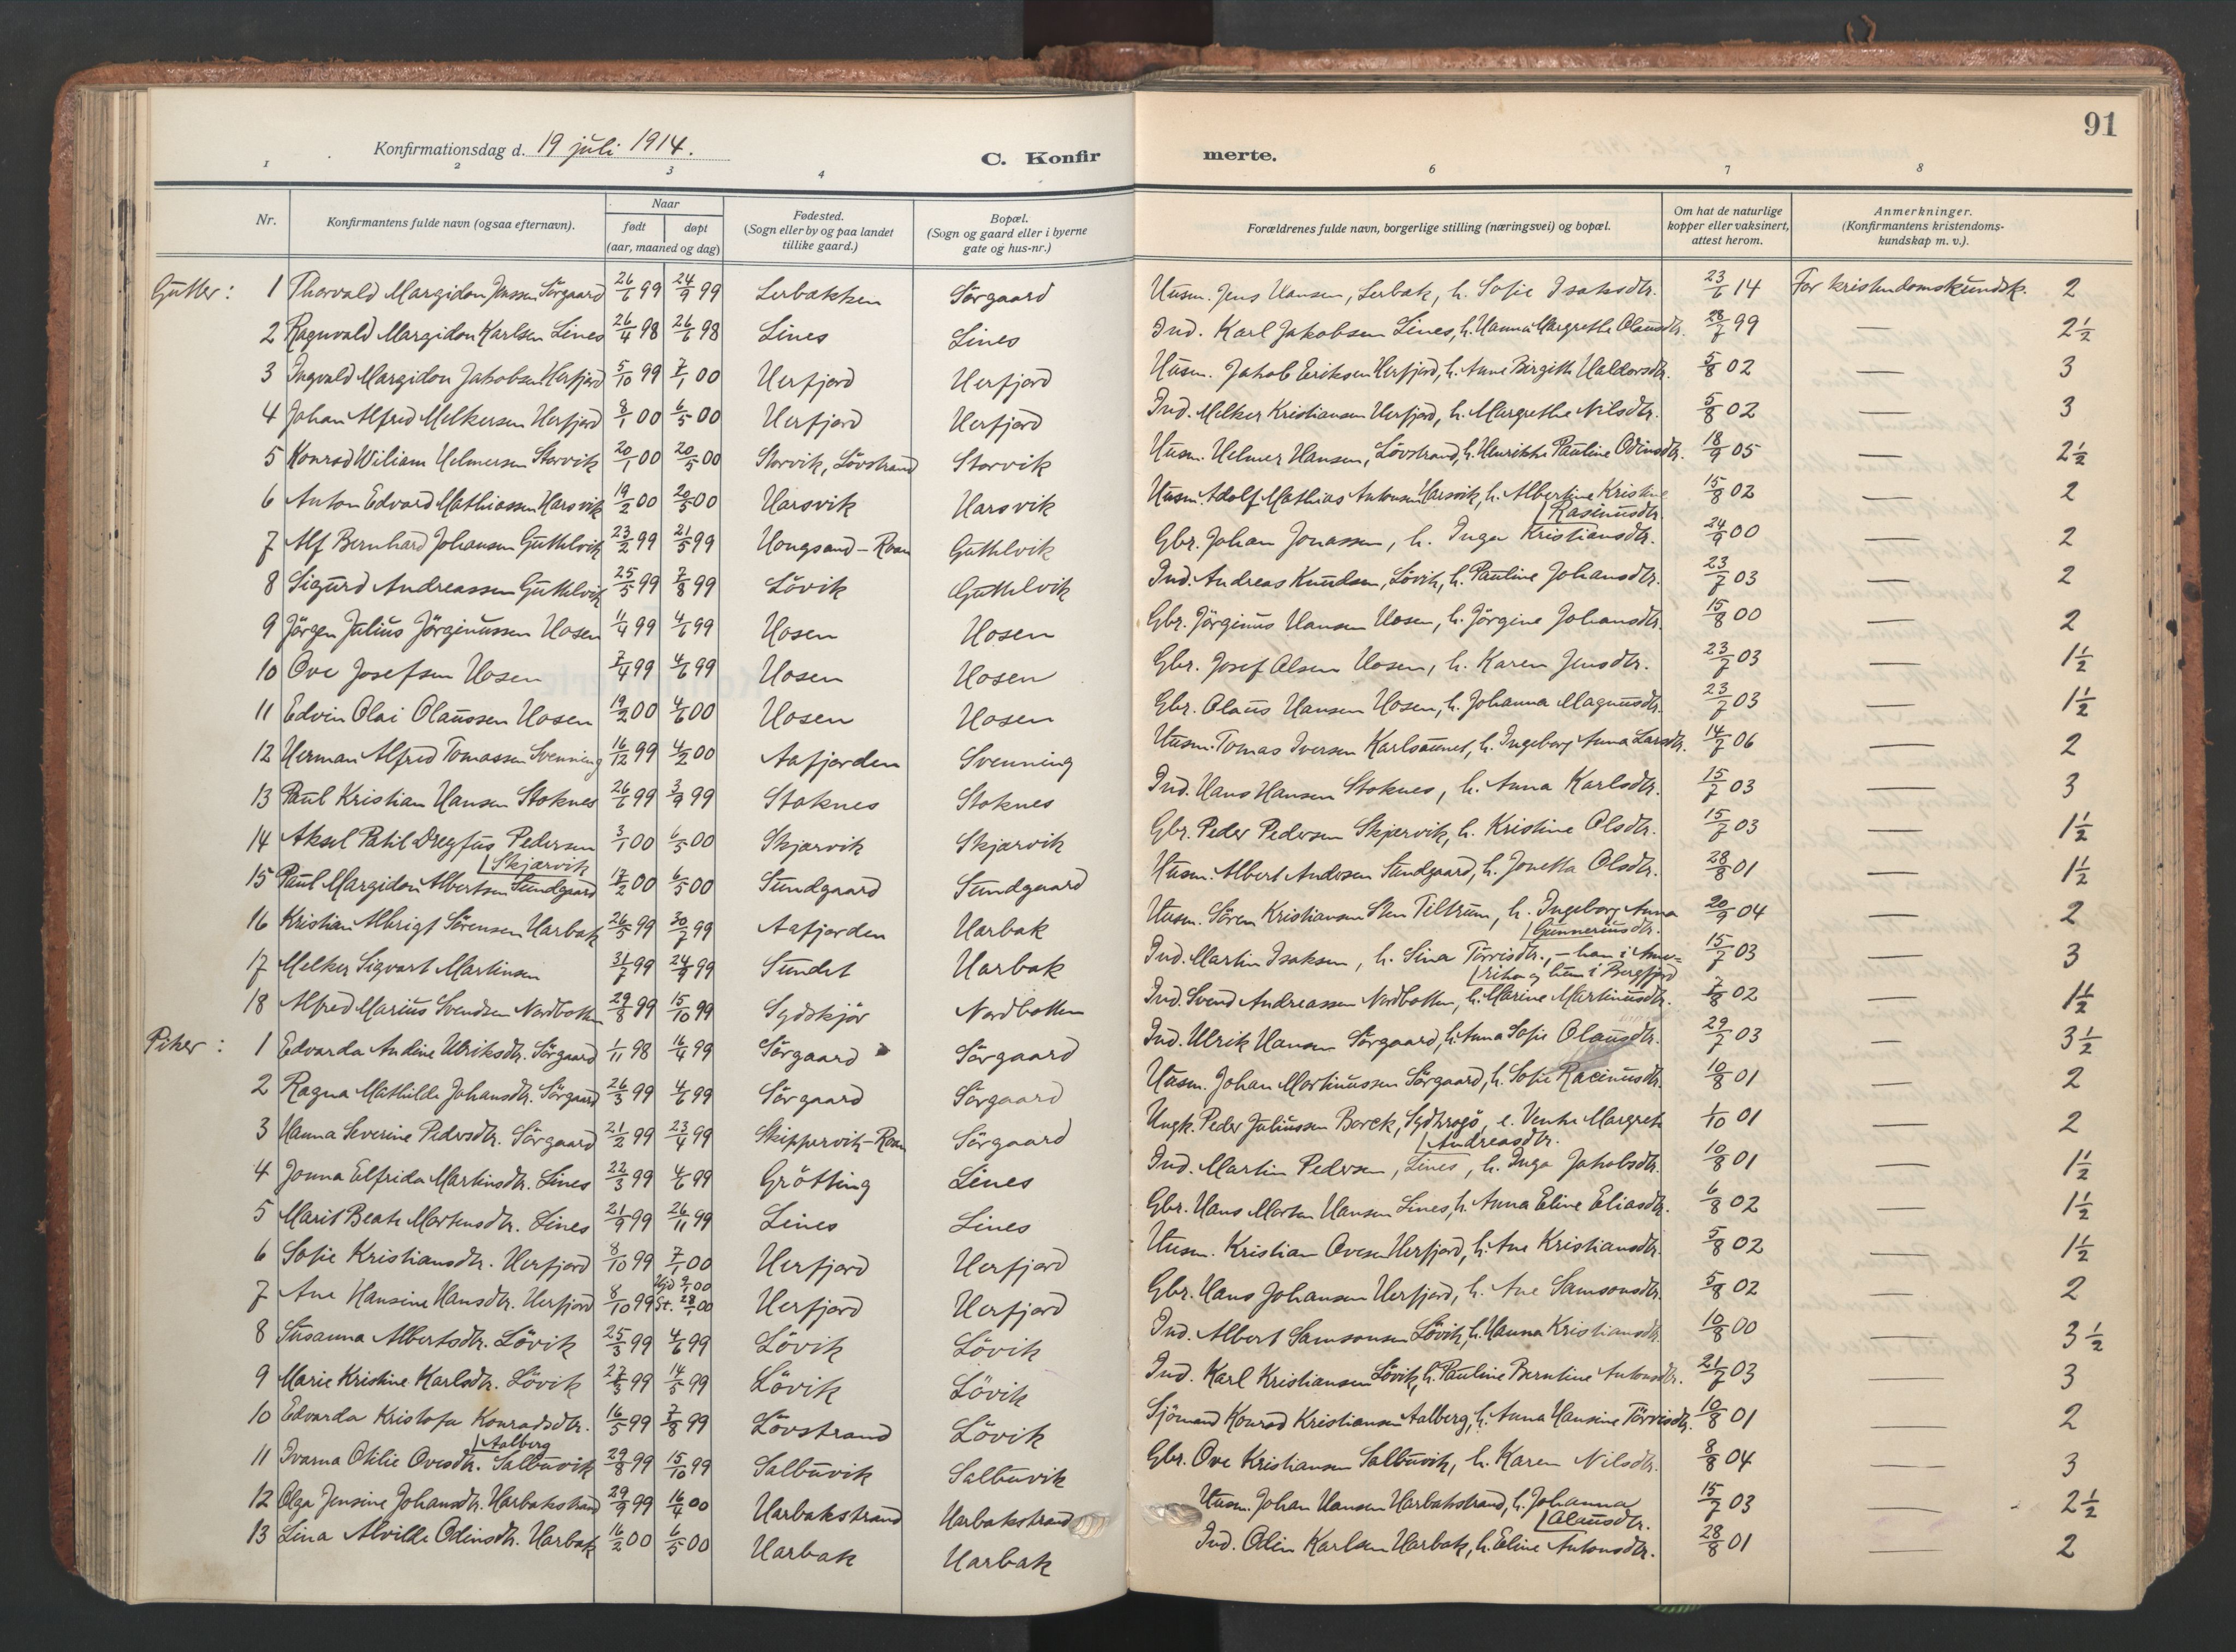 91
Konfirmationsdag d. 19 juli 1914.
C. Konfir merte.
1 2 3 4 6 7 8
Nr.
Konfirmantens fulde navn (ogsaa efternavn).
Naar
født
døpt
(aar, maaned og dag)
Fødested.
(Sogn eller by og paa landet
tillike gaard.)
Bopæl.
(Sogn og gaard eller i byerne
gate og hus-nr.)
Forældrenes fulde navn, borgerlige stilling (næringsvei) og bopæl.
Om hat de naturlige
kopper eller vaksinert,
attest herom.
Anmerkninger.
(Konfirmantens kristendoms-
kundskap m. v.).
Gutter: 1 Thorvald Margidon Jenssen Sörgaard 26/6 99 24/9 99 Lerbakken Sörgaard Husm. Jens Hansen, Lerbak, h. Sofie Isaksdtr. 23/6 14 For kristendomskundsk. 2
2 Ragnvald Margidon Karlsen Lines 26/4 98 26/6 98 Lines Lines Ind. Karl Jakobsen Lines, h. Hanna Margrethe Olausdtr. 28/7 99 — 2½
3 Ingvald Margidon Jakobsen Herfjord 5/10 99 7/1 00 Herfjord Herfjord Husm. Jakob Eriksen Herfjord, h. Anne Birgitte Haldorsdtr. 5/8 02 — 3
4 Johan Alfred Melkersen Herfjord 8/1 00 6/5 00 Herfjord Herfjord Ind. Melker Kristiansen Herfjord, h. Margrethe Nilsdtr. 5/8 02 — 3
5 Konrad Wiliam Helmersen Storvik 20/1 00 20/5 00 Storvik, Lövstrand Storvik Husm. Helmer Hansen, Lövstrand, h. Henrikke Pauline Odinsdtr. 18/9 05 — 2½
6 Anton Edvard Mathiassen Harsvik 19/2 00 20/5 00 Harsvik Harsvik Husm. Adolf Mathias Antonsen Harsvik, h. Albertine Kristine
Rasmusdtr. 15/8 02 — 2
7 Alf Bernhard Johansen Guttelvik 23/2 99 21/5 99 Hongsand - Roan Guttelvik Gbr. Johan Jonassen, h. Inga Kristiansdtr. 24/9 00 — 2
8 Sigurd Andreassen Guttelvik 25/5 99 7/8 99 Lövik Guttelvik Ind. Andreas Knudsen, Lövik, h. Pauline Johansdtr. 23/7 03 — 2
9 Jörgen Julius Jörginussen Hosen 11/4 99 4/6 99 Hosen Hosen Gbr. Jörginus Hansen Hosen, h. Jörgine Johansdtr. 15/8 00 — 2
10 Ove Josefsen Hosen 7/4 99 4/6 99 Hosen Hosen Gbr. Josef Olsen Hosen, h. Karen Jensdtr. 23/7 03 — 1½
11 Edvin Olai Olaussen Hosen 19/2 00 4/6 00 Hosen Hosen Gbr. Olaus Hansen Hosen, h. Johanna Magnusdtr. 23/7 03 — 1½
12 Herman Alfred Tomassen Svenning 16/12 99 4/2 00 Aafjorden Svenning Husm. Tomas Iversen Karlsaunet, h. Ingeborg Anna Larsdtr. 14/7 06 — 2
13 Paul Kristian Hansen Stoknes 26/6 99 3/9 99 Stoknes Stoknes Ind. Hans Hansen Stoknes, h. Anna Karlsdtr. 15/7 03 — 3
14 Aksel Patil Dreyfus Pedersen
Skjærvik 3/1 00 6/5 00 Skjærvik Skjærvik Gbr. Peder Pedersen Skjærvik, h. Kristine Olsdtr. 15/7 03 — 1½
15 Paul Margidon Albertsen Sundgaard 17/2 00 6/5 00 Sundgaard Sundgaard Husm. Albert Andersen Sundgaard, h. Jonetta Olsdtr. 28/8 01 — 1½
16 Kristian Albrigt Sörensen Harbak 26/5 99 30/7 99 Aafjorden Harbak Husm. Sören Kristiansen Sten Teltrum, h. Ingeborg Anna
Gunneriusdtr. 20/9 04 — 2
17 Melker Sigvart Martinsen 31/7 99 24/9 99 Sundet Harbak Ind. Martin Isaksen, h. Sina Tørrisdtr., — han i Ame-
rika og hun i Bergfjord 15/7 03 — 3
18 Alfred Marius Svendsen Nordbotten 29/8 99 15/10 99 Sydskjör Nordbotten Ind. Svend Andreassen Nordbotten, h. Marine Martinusdtr. 7/8 02 — 1½
Piker: 1 Edvarda Andine Ulriksdtr. Sörgaard 1/11 98 16/4 99 Sörgaard Sörgaard Ind. Ulrik Hansen Sörgaard, h. Anna Sofie Olausdtr. 29/7 03 — 3½
2 Ragna Mathilde Johansdtr. Sörgaard 26/3 99 4/6 99 Sörgaard Sörgaard Husm. Johan Martinussen Sörgaard, h. Sofie Racinusdtr. 10/8 01 — 2
3 Hanna Severine Pedersdtr. Sörgaard 21/2 99 23/4 99 Skippervik - Roan Sörgaard Ungk. Peder Juliussen Borck, Sydkrogö, e. Venke Margrete
Andreasdtr. 1/10 01 — 2
4 Jonna Elfrida Martinsdtr. Lines 22/3 99 4/6 99 Grötting Lines Ind. Martin Pedersen, Lines, h. Inga Jakobsdtr. 10/8 01 — 1½
5 Marit Beate Mortensdtr. Lines 21/9 99 26/11 99 Lines Lines Gbr. Hans Morten Hansen Lines, h. Anna Eline Eliasdtr. 6/8 02 — 1½
6 Sofie Kristiansdtr. Herfjord 8/10 99 7/1 00 Herfjord Herfjord Husm. Kristian Ovesen Herfjord, h. Ane Kristiansdtr. 5/8 02 — 1½
7 Ane Hansine Hansdtr. Herfjord 8/10 99 Hjd 9/1 00
St. 28/1 00 Herfjord Herfjord Gbr. Hans Johansen Herfjord, h. Ane Samsonsdtr. 5/8 02 — 2
8 Susanna Albertsdtr. Lövik 25/3 99 4/6 99 Lövik Lövik Ind. Albert Samsonsen Lövik, h. Hanna Kristiansdtr. 10/8 00 — 3½
9 Marie Kristine Karlsdtr. Lövik 27/3 99 14/5 99 Lövik Lövik Ind. Karl Kristiansen Lövik, h. Pauline Berntine Antonsdtr. 21/7 03 — 3
10 Edvarda Kristofa Konradsdtr.
Aalberg 16/5 99 7/8 99 Lövstrand Lövik Sjömand Konrad Kristiansen Aalberg, h. Anna Hansine Törrisdtr. 10/8 01 — 2
11 Ivarna Otilie Ovesdtr. Salbuvik 29/8 99 15/10 99 Salbuvik Salbuvik Gbr. Ove Kristiansen Salbuvik, h. Karen Nilsdtr. 8/8 04 — 3
12 Olga Jensine Johansdtr. Harbakstrand 29/9 99 16/4 00 Harbakstrand Harbakstrand Husm. Johan Hansen Harbakstrand, h. Johanna
Olausdtr. 15/7 03 — 2½
13 Lina Alvilde Odinsdtr. Harbak 16/2 00 6/5 00 Harbak Harbak Ind. Odin Karlsen Harbak, h. Eline Antonsdtr. 28/8 01 — 2